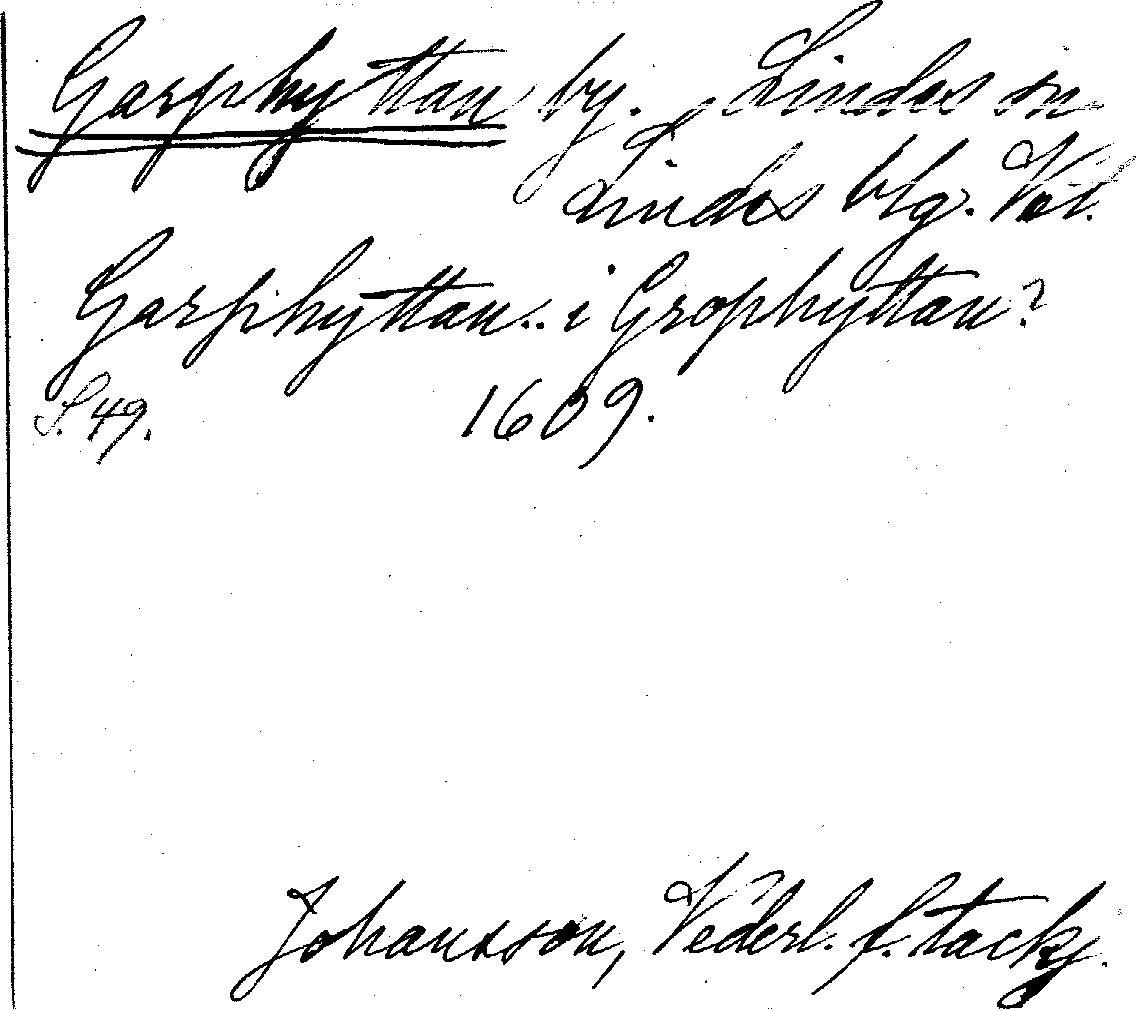 Garphyttan by. Lindes sn
Lindes blg. Vstl.
Garphyttan.. i Grophyttan?
S. 49. 1609.
Johansson, Vederl. f. tackj.